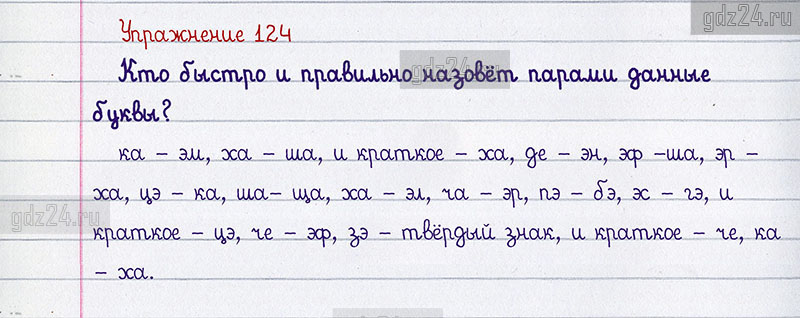 gdz24.ru
Упражнение 124
Кто быстро и правильно назовёт парами данные
gdz24.ru
буквы?
ка – эм, ха – ша, и краткое – ха, де – эн, эф –ша, эр –
ха, цэ – ка, ша– ща, ха – эл, ча – эр, пэ – бэ, эс – гэ, и
gdz24.ru
краткое – цэ, че – эф, зэ – твёрдый знак, и краткое – че, ка
– ха.